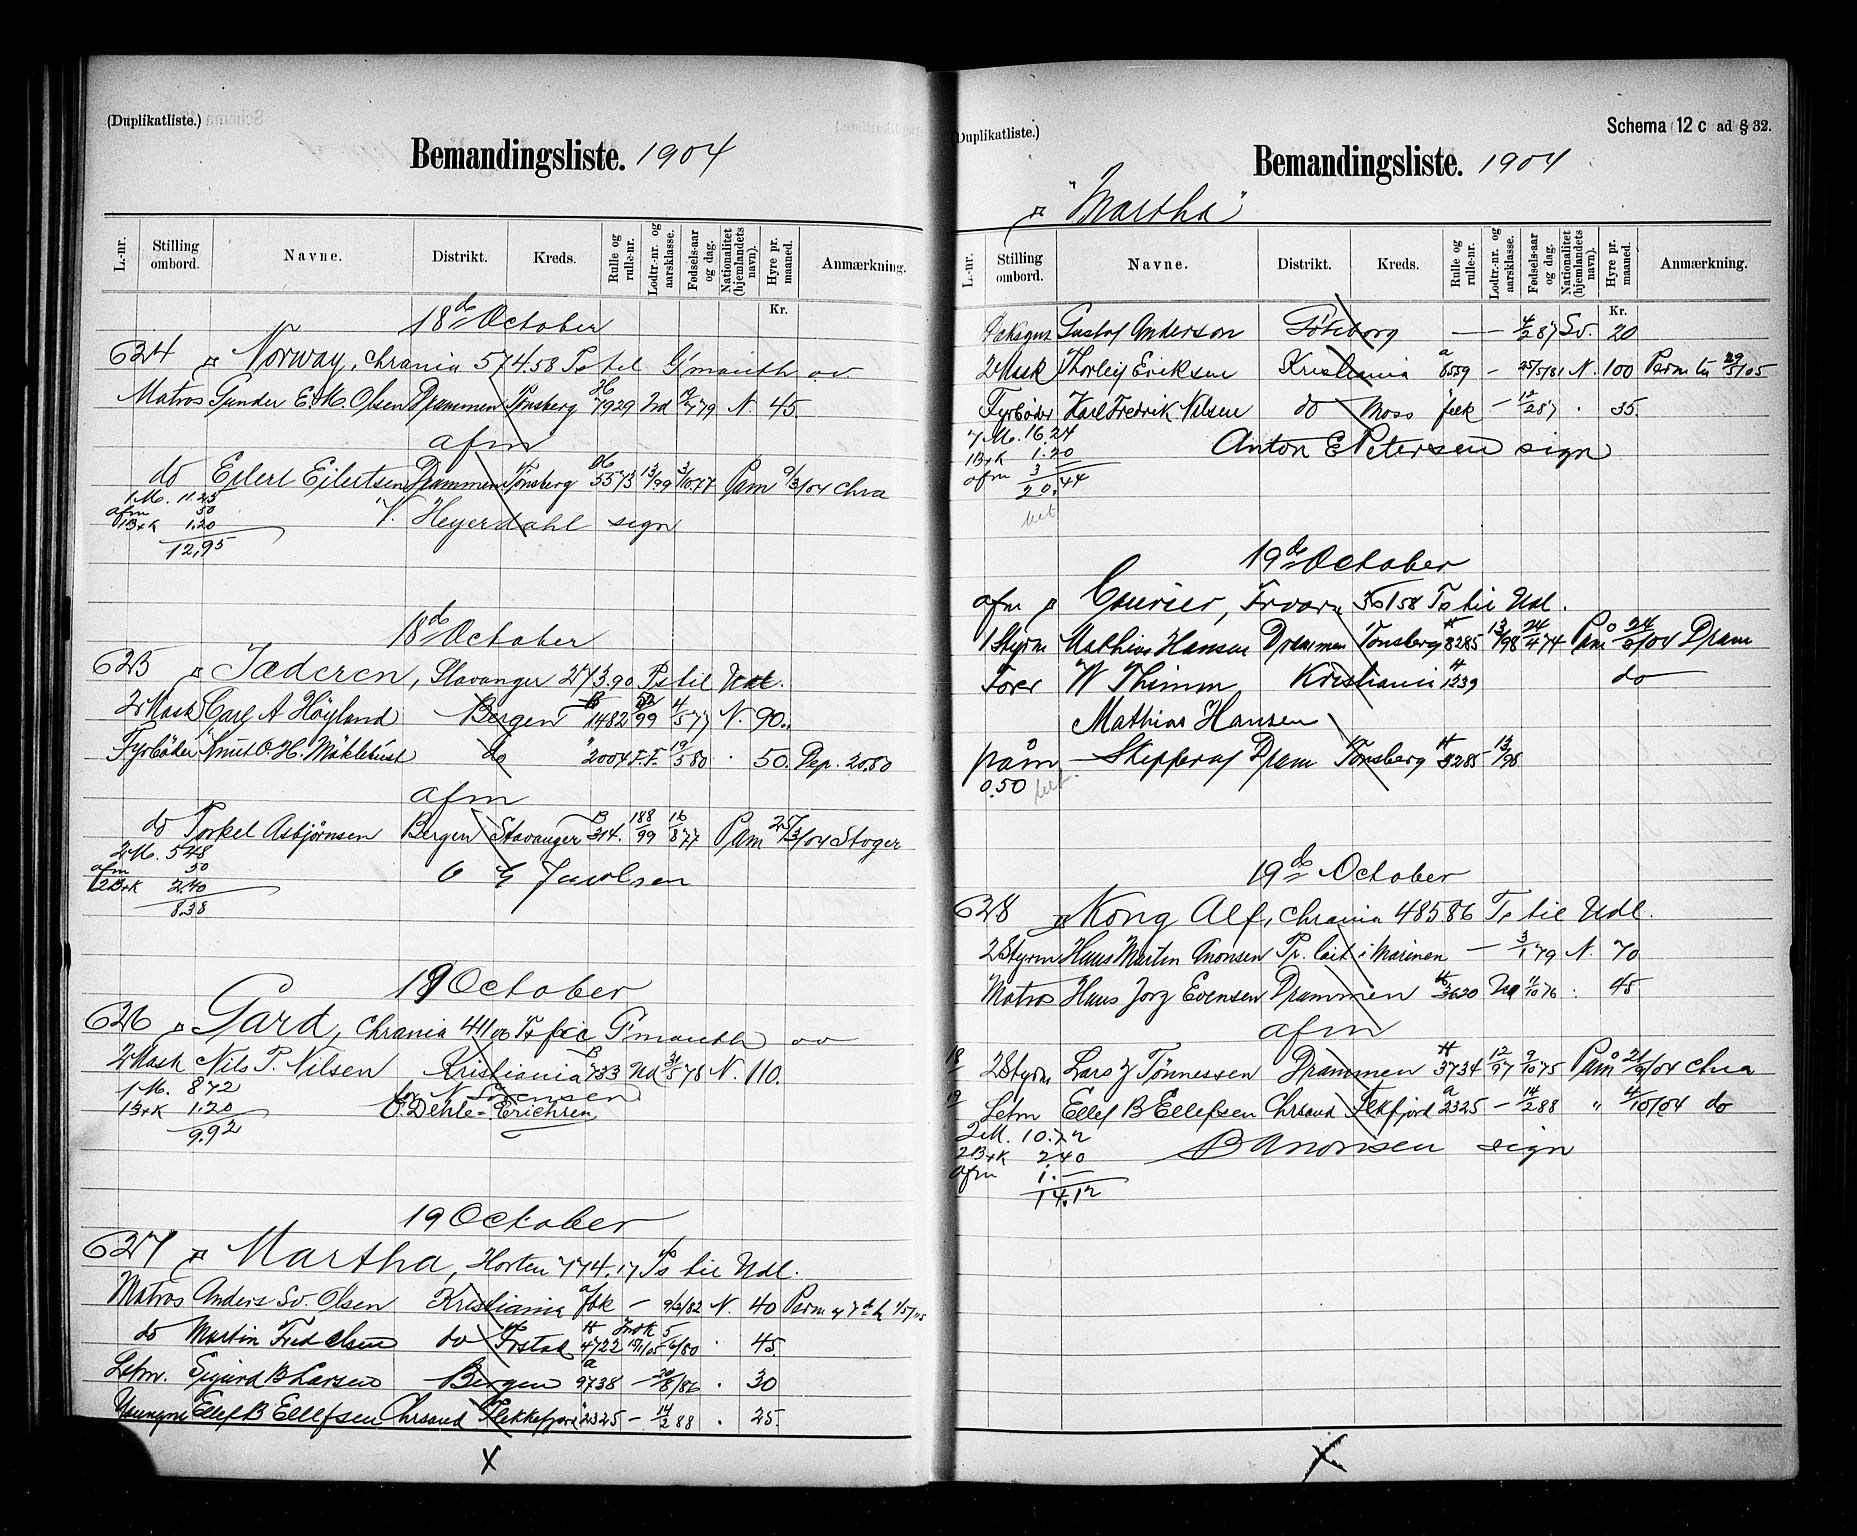 (Duplikatliste.)
Bemandingsliste. 1904
L.-nr. Stilling ombord. Navne. Distrikt. Kreds. Rulle og rulle-nr. Lodtr.-nr. og aarsklasse. Fødsels-aar og dag. Nationalitet (hjemlandets navn). Hyre pr. maaned. Anmærkning.
Kr.
18de October
624 Norway, Chrania 574.58 Ts til G'mouth ov
Matros Gunder E. M. Olsen Drammen Tønsberg 7929 79 N. 45
afm
do Eilert Eilertsen Drammen Tønsberg 5573 13/99 3/10 77 Pam 9/3/04 Chra
1 M. 11.25
afm 50
1B+K 1.20
12,95
V. Heyerdahl sign
18de October
625 Jæderen, Stavanger 273.90 Ts til Udl.
2 Mask Carl A Höyland Bergen 1482 99 4/5 77 N. 90.
Fyrböder Knut O. H. do 2004 F.F. 19/5 80 50.
afm
do Torkel Asbjørnsen Bergen Stavanger 314. 188/99 16/8 77 Pam 25/3/04 Stvger
2 M. 548
afm 50
2B+K 2.40
8.38
Jacobsen
19 October
626 Gard, Chrania Ts G'mouth ov
2 Mask Nils P. Nilsen Kristiania 733 78 N. 110.
1 M. 872
1B+K 1.20
9.92
O. Dehle-Erichsen
19 October
627 Martha, Horten 774.17 Ts til Udl.
Matros Anders Sv. Olsen Kristiania fbk - 9/2/82 N. 40
do Martin Fred Olsen do 4722 5/6/80 45.
Letm. Sigurd B Larsen Bergen 9738 - 20/8/86 30
Youngm Ellef B Ellefsen Chrsand Flekkefjord 2325 - 14/2 88 25.
X
(Duplikatliste.)
Schema 12 c ad § 32.
Bemandingsliste. 1904
"Martha"
L.-nr. Stilling ombord. Navne. Distrikt. Kreds. Rulle og rulle-nr. Lodtr.-nr. og aarsklasse. Fødsels-aar og dag. Nationalitet (hjemlandets navn). Hyre pr. maaned. Anmærkning.
Kr.
Gustaf Anderson Göteborg - - 4/2 87 Sv. 20
2 Mask Thorleif Eriksen Kristiania 8559 - 25/5/81 N. 100
Fyrböder Karl Fredrik Nilsen do Moss - 12/2 87 35.
7 M. 16.24
1B+K 1.20
afm 3
20.44
Anton E Petersen sign
19de October
afm Courier, Ts til Udl.
1 Styrm Mathias Hansen Drammen Tønsberg 8285 13/98 24/4 74 Påm 24/2/04 Dram
Forer W Thimm Kristiania 1239 do
Mathias Hansen
påm - Skipper af Dram Tønsberg 8285 13/98
0.50
19de October
628 Kong Alf, Chrania 485 86 Ts til Udl.
2 Styrm Hans Martin Anonsen i Marinen - 3/1 79 N. 70
Matros Hans Jorg Evensen Drammen 3620 11/10 76 45
afm
18 2 Styrm Lars Z Tønnessen Drammen 3734 12/97 9/10 75 Påm 21/9/04 Chra
19 Letm Ellef B Ellefsen Chrsand Flkfjord 2325 - 14/2 88 " 4/10/04 do
2 M. 10.72
2B+K 2.40
afm 1.-
14.12
B Anonsen sign
X